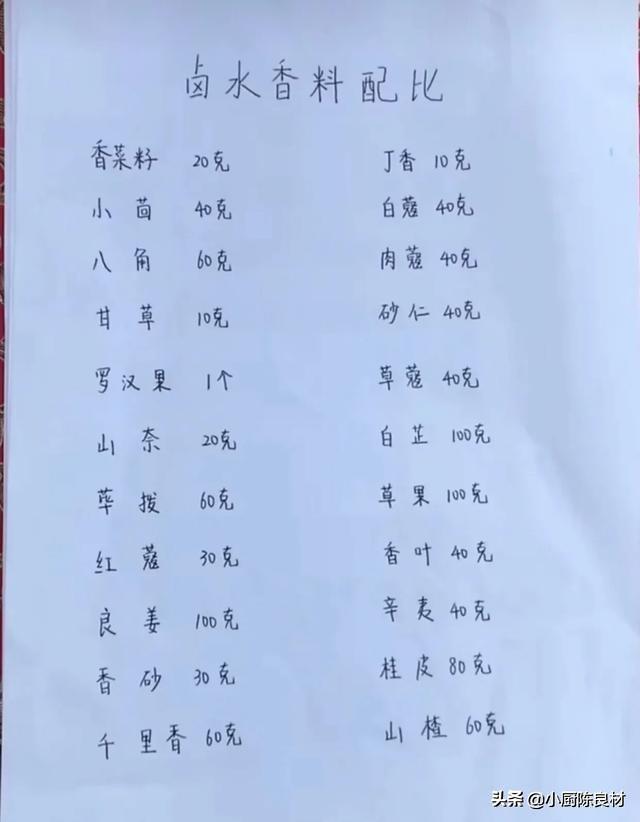 卤水香料配比
香菜籽 20克 丁香 10克
小茴 40克 白蔻 40克
八角 60克 肉蔻 40克
甘草 10克 砂仁 40克
罗汉果 1个 草蔻 40克
山奈 20克 白芷 100克
荜拨 60克 草果 100克
红蔻 30克 香叶 40克
良姜 100克 辛夷 40克
香砂 30克 桂皮 80克
千里香 60克 山楂 60克
头条 @小厨陈良材